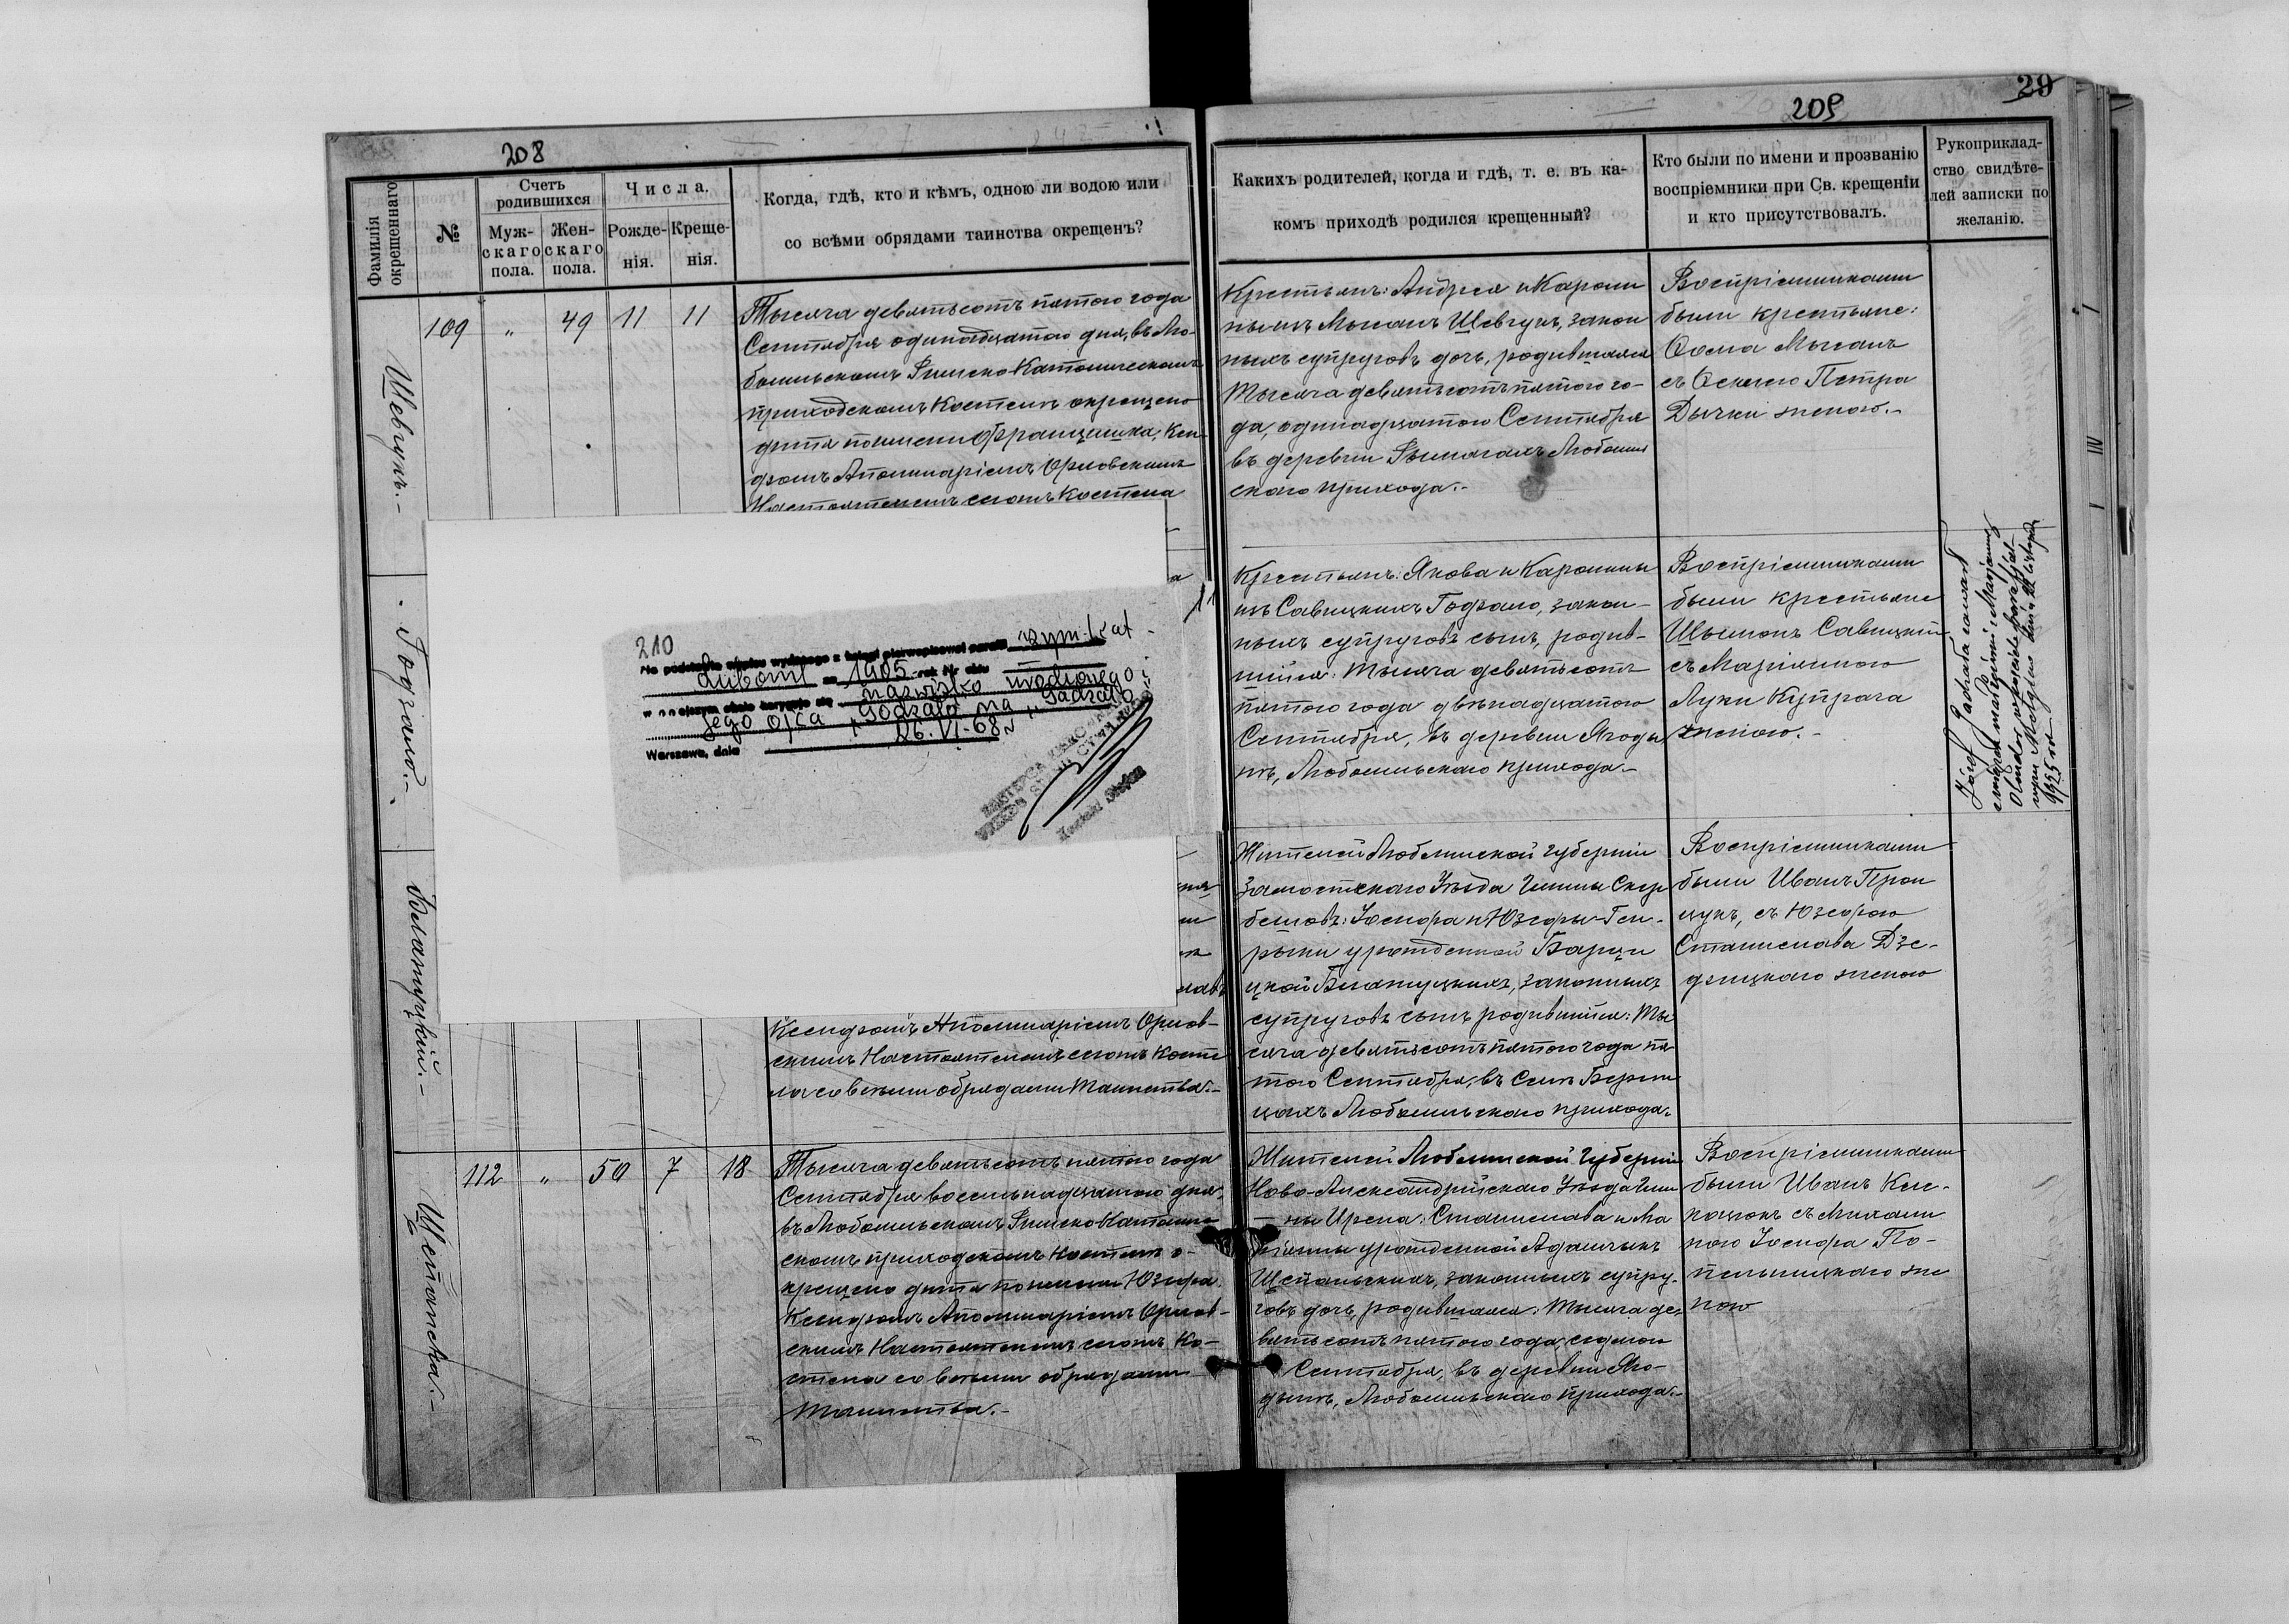 208
Фамилія окрещеннаго
№
Счетъ родившихся
Муж-
скаго
пола.
Жен-
скаго
пола.
Числа.
Рожде-
нія.
Креще-
нія.
Когда, гдѣ, кто и кѣмъ, одною ли водою или
со всѣми обрядами таинства окрещенъ?
Шевчукъ.-
109 " 49 11 11
Тысяча девятьсотъ пятого года
Сентября одинадцатого дня, въ Лю-
бомльскомъ Римско Католическомъ
приходскомъ Костелѣ окрещено
дитя по имени Францишка, Ксен-
дзомъ Аполинаріемъ Орловскимъ
Настоятелемъ сегожъ Костела
Годзало.-
210
rzym.-kat.
Luboml za 1905 rok Nr aktu
nazwisko urodzonego
jego ojca "Godzało" na "Gadzała"
Warszawa, dnia 26.VI-68
Белатуцкій.-
Ксендзомъ Аполинаріемъ Орлов-
скимъ Настоятелемъ сегожъ Косте
ла со всѣми обрядами Таинства.-
Щепанска.-
112 " 50 7 18
Тысяча девятьсотъ пятого года
Сентября восемьнадцатого дня,
въ Любомльскомъ Римско Католиче
скомъ приходскомъ Костелѣ о-
крещено дитя по имени Юзефа.
Ксендзомъ Аполинаріемъ Орлов-
скимъ Настоятелемъ сегожъ Ко-
стела со всѣми обрядами
Таинства.-
209
29
Какихъ родителей, когда и гдѣ, т. е. въ ка-
комъ приходѣ родился крещенный?
Кто были по имени и прозванію
воспріемники при Св. крещеніи
и кто присутствовалъ.
Рукоприклад-
ство свидѣте-
лей записки по
желанію.
Крестьянъ: Андрея и Кароли
ны изъ Мысанъ Шевчукъ, закон
ныхъ супруговъ дочь, родившаяся
Тысяча девятьсотъ пятого го-
да, одинадцатого Сентября
въ деревни Рымачахъ Любомль
скаго прихода.-
Воспріемниками
были крестьяне:
Фома Мысанъ
съ Петра
Дычки женою.-
Крестьянъ: Якова и Каролины
изъ Савицкихъ Годзало, закон-
ныхъ супруговъ сынъ, родив-
шійся: Тысяча девятьсотъ
пятого года двѣнадцатого
Сентября, въ деревни Ягоды
нѣ, Любомльскаго прихода.-
Воспріемниками
были крестьяне
Шымонъ Савицкій
съ Маріянною
Луки Купрага
женою.-
Józef Gadzała zawarł
związek małżeński z Marjanną
1935 rok
Жителей Люблинской губерніи
Замостскаго Уѣзда Гмины Скер
бешовъ: Іосифа и Юзефы-Ген-
рыки урожденной Барщи
цкой Белатуцкихъ, законныхъ
супруговъ сынъ родившійся: Ты
сяча девятьсотъ пятого года пя-
того Сентября, въ Селѣ Бережи
цахъ Любомльскаго прихода.
Воспріемниками
были Иванъ
съ Юзефою
Станислава Дзе-
дзицкаго женою
Жителей Люблинской Губерніи
Ново-Александрійскаго Уѣзда Гми
ны Ирена: Станислава и Ма
ріянны урожденной Адамчыкъ
Щепанскихъ, законныхъ супру-
говъ дочь, родившаяся: Тысяча де-
вятьсотъ пятого года, седмого
Сентября, въ деревни Яго-
дынѣ, Любомльскаго прихода.-
Воспріемниками
были Иванъ
съ Михали
ною Іосифа По-
женою